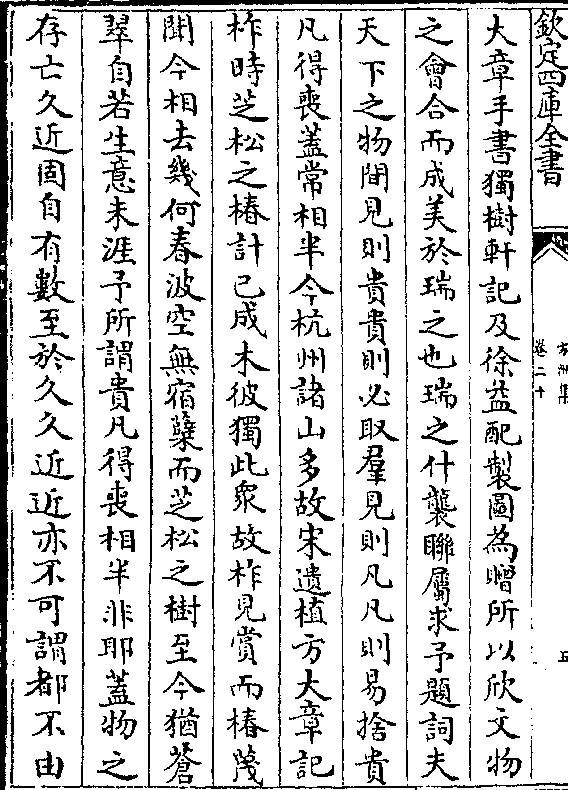 欽定四庫全書
方洲集
卷二十
五
大章手書獨樹軒記及徐益配製圖為贈所以欣文物
之會合而成美於瑞之也瑞之什襲聯屬求予題詞夫
天下之物閒見則貴貴則必取羣見則凡凡則易捨貴
凡得喪蓋常相半今杭州諸山多故宋遺植方大章記
柞時芝松之椿計已成木彼獨此衆故柞見賞而椿蔑
聞今相去幾何春波空無宿蘖而芝松之樹至今猶蒼
翠自若生意未涯予所謂貴凡得喪相半非耶蓋物之
存亡久近固自有數至於久久近近亦不可謂都不由